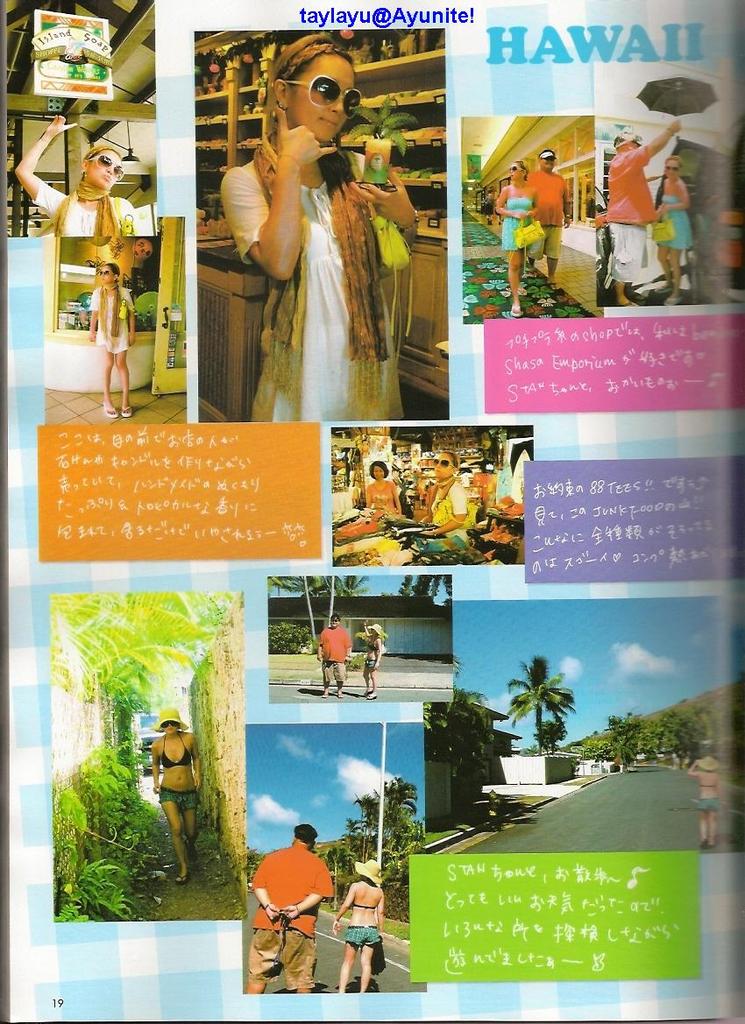 taylayu@Ayunite!
HAWAII
Island Soap
プチプラ系のshopでは、私は
Shasa Emporiumが好きです
STAHちゃんと、おかいものぉー♪
ここは、目の前でお店の人が
石けんやキャンドルを作りながら
売っていて、ハンドメイドのぬくもり
たっぷり&トロピカルな香りに
包まれて、居るだけでいやされるー
お約束の88TEES!!ですぅ♪
見て、このJUNKFOODの山!!
こんなに全種類がそろってる
のはスゴーイ♡コンプ
STAHちゃんと、お散歩〜♪
とってもいいお天気だったので、
いろんな所を探検しながら
遊んでましたぁー
19